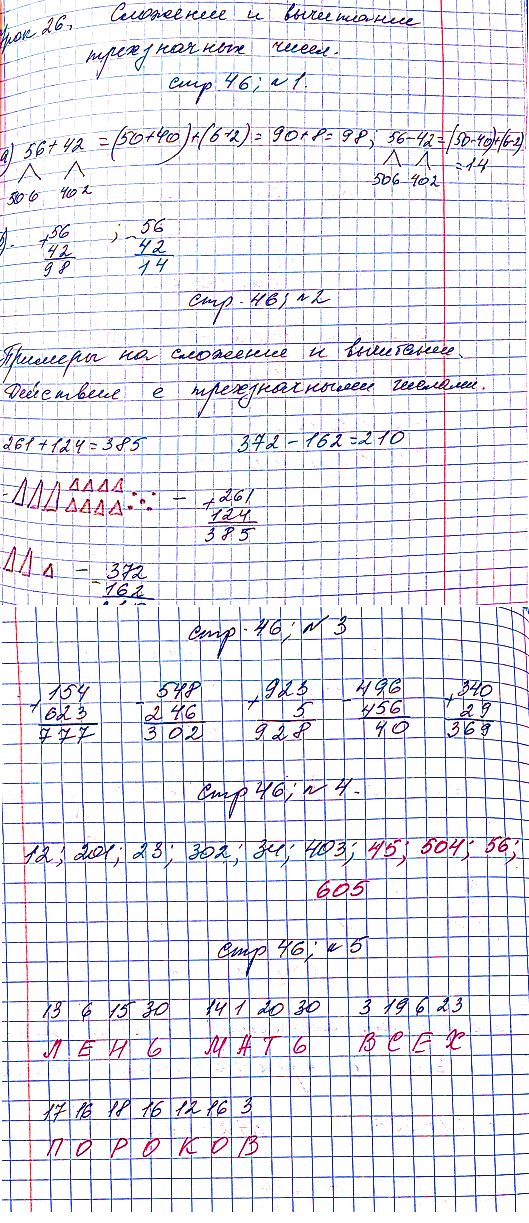 Урок 26. Сложение и вычитание
трехзначных чисел.
стр 46; n 1.
а) 56+42 = (50+40)+(6+2) = 90+8 = 98; 56-42=(50-40)+(6-2)
50 6 40 2 50 6 40 2 =14
б). +56 ; -56
42 42
98 14
стр. 46; n 2
Примеры на сложение и вычитание.
Действия с трехзначными числами.
261+124=385 372-162=210
- +261
124
385
- -372
162
стр. 46; n 3
+154 -548 +923 -496 +340
623 246 5 456 29
777 302 928 40 369
стр 46; n 4.
12; 201; 23; 302; 34; 403; 45; 504; 56;
605
стр 46; n 5
13 6 15 30 14 1 20 30 3 19 6 23
Л Е Н Ь М А Т Ь В С Е Х
17 16 18 16 12 16 3
П О Р О К О В